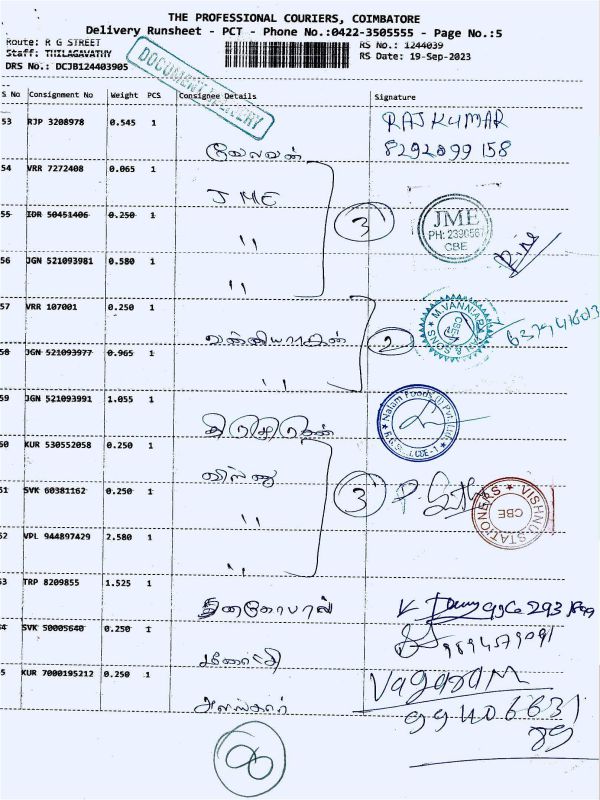 THE PROFESSIONAL COURIERS, COIMBATORE
Delivery Runsheet - PCT - Phone No.:0422-3505555 - Page No.:5
Route: R G STREET
RS No.: 1244039
Staff: THILAGAVATHY
RS Date: 19-Sep-2023
DRS No.: DCJB124403905
DOCUMENT DELIVERY
S No Consignment No Weight PCS Consignee Details Signature
53 RJP 3208978 0.545 1 வேலவன் RAJKUMAR
8292099158
54 VRR 7272408 0.065 1 JME
55 IDR 50451406 0.250 1 " 3 JME
PH: 2390567
CBE
56 JGN 521093981 0.580 1 "
57 VRR 107001 0.250 1 வன்னியராஜன் 2 M.VANNIARAJAN & SONS CBE
58 JGN 521093977 0.965 1 "
59 JGN 521093991 1.055 1 Nalam Foods (I) Pvt Ltd
60 KUR 530552058 0.250 1 விஷ்ணு
61 SVK 60381162 0.250 1 " 3 VISHNU STATIONERS CBE
62 VPL 944897429 2.580 1 "
63 TRP 8209855 1.525 1 தனகோபால்
64 SVK 50005640 0.250 1 மனோஜ் 9894579091
65 KUR 7000195212 0.250 1 அலங்கார் Vagaram
99406631
89
8